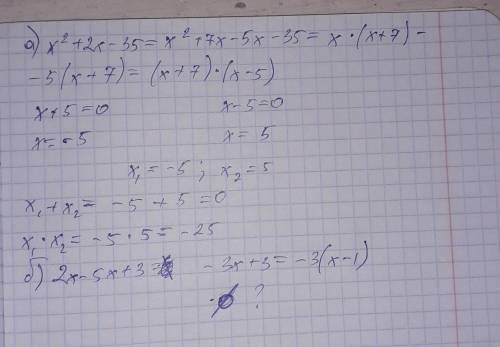 а) x² + 2x - 35 = x² + 7x - 5x - 35 = x · (x + 7) -
- 5 (x + 7) = (x + 7) · (x - 5)
x + 5 = 0 x - 5 = 0
x = - 5 x = 5
x₁ = -5 ; x₂ = 5
x₁ + x₂ = -5 + 5 = 0
x₁ · x₂ = -5 · 5 = -25
б) 2x - 5x + 3 = - 3x + 3 = -3(x - 1)
?